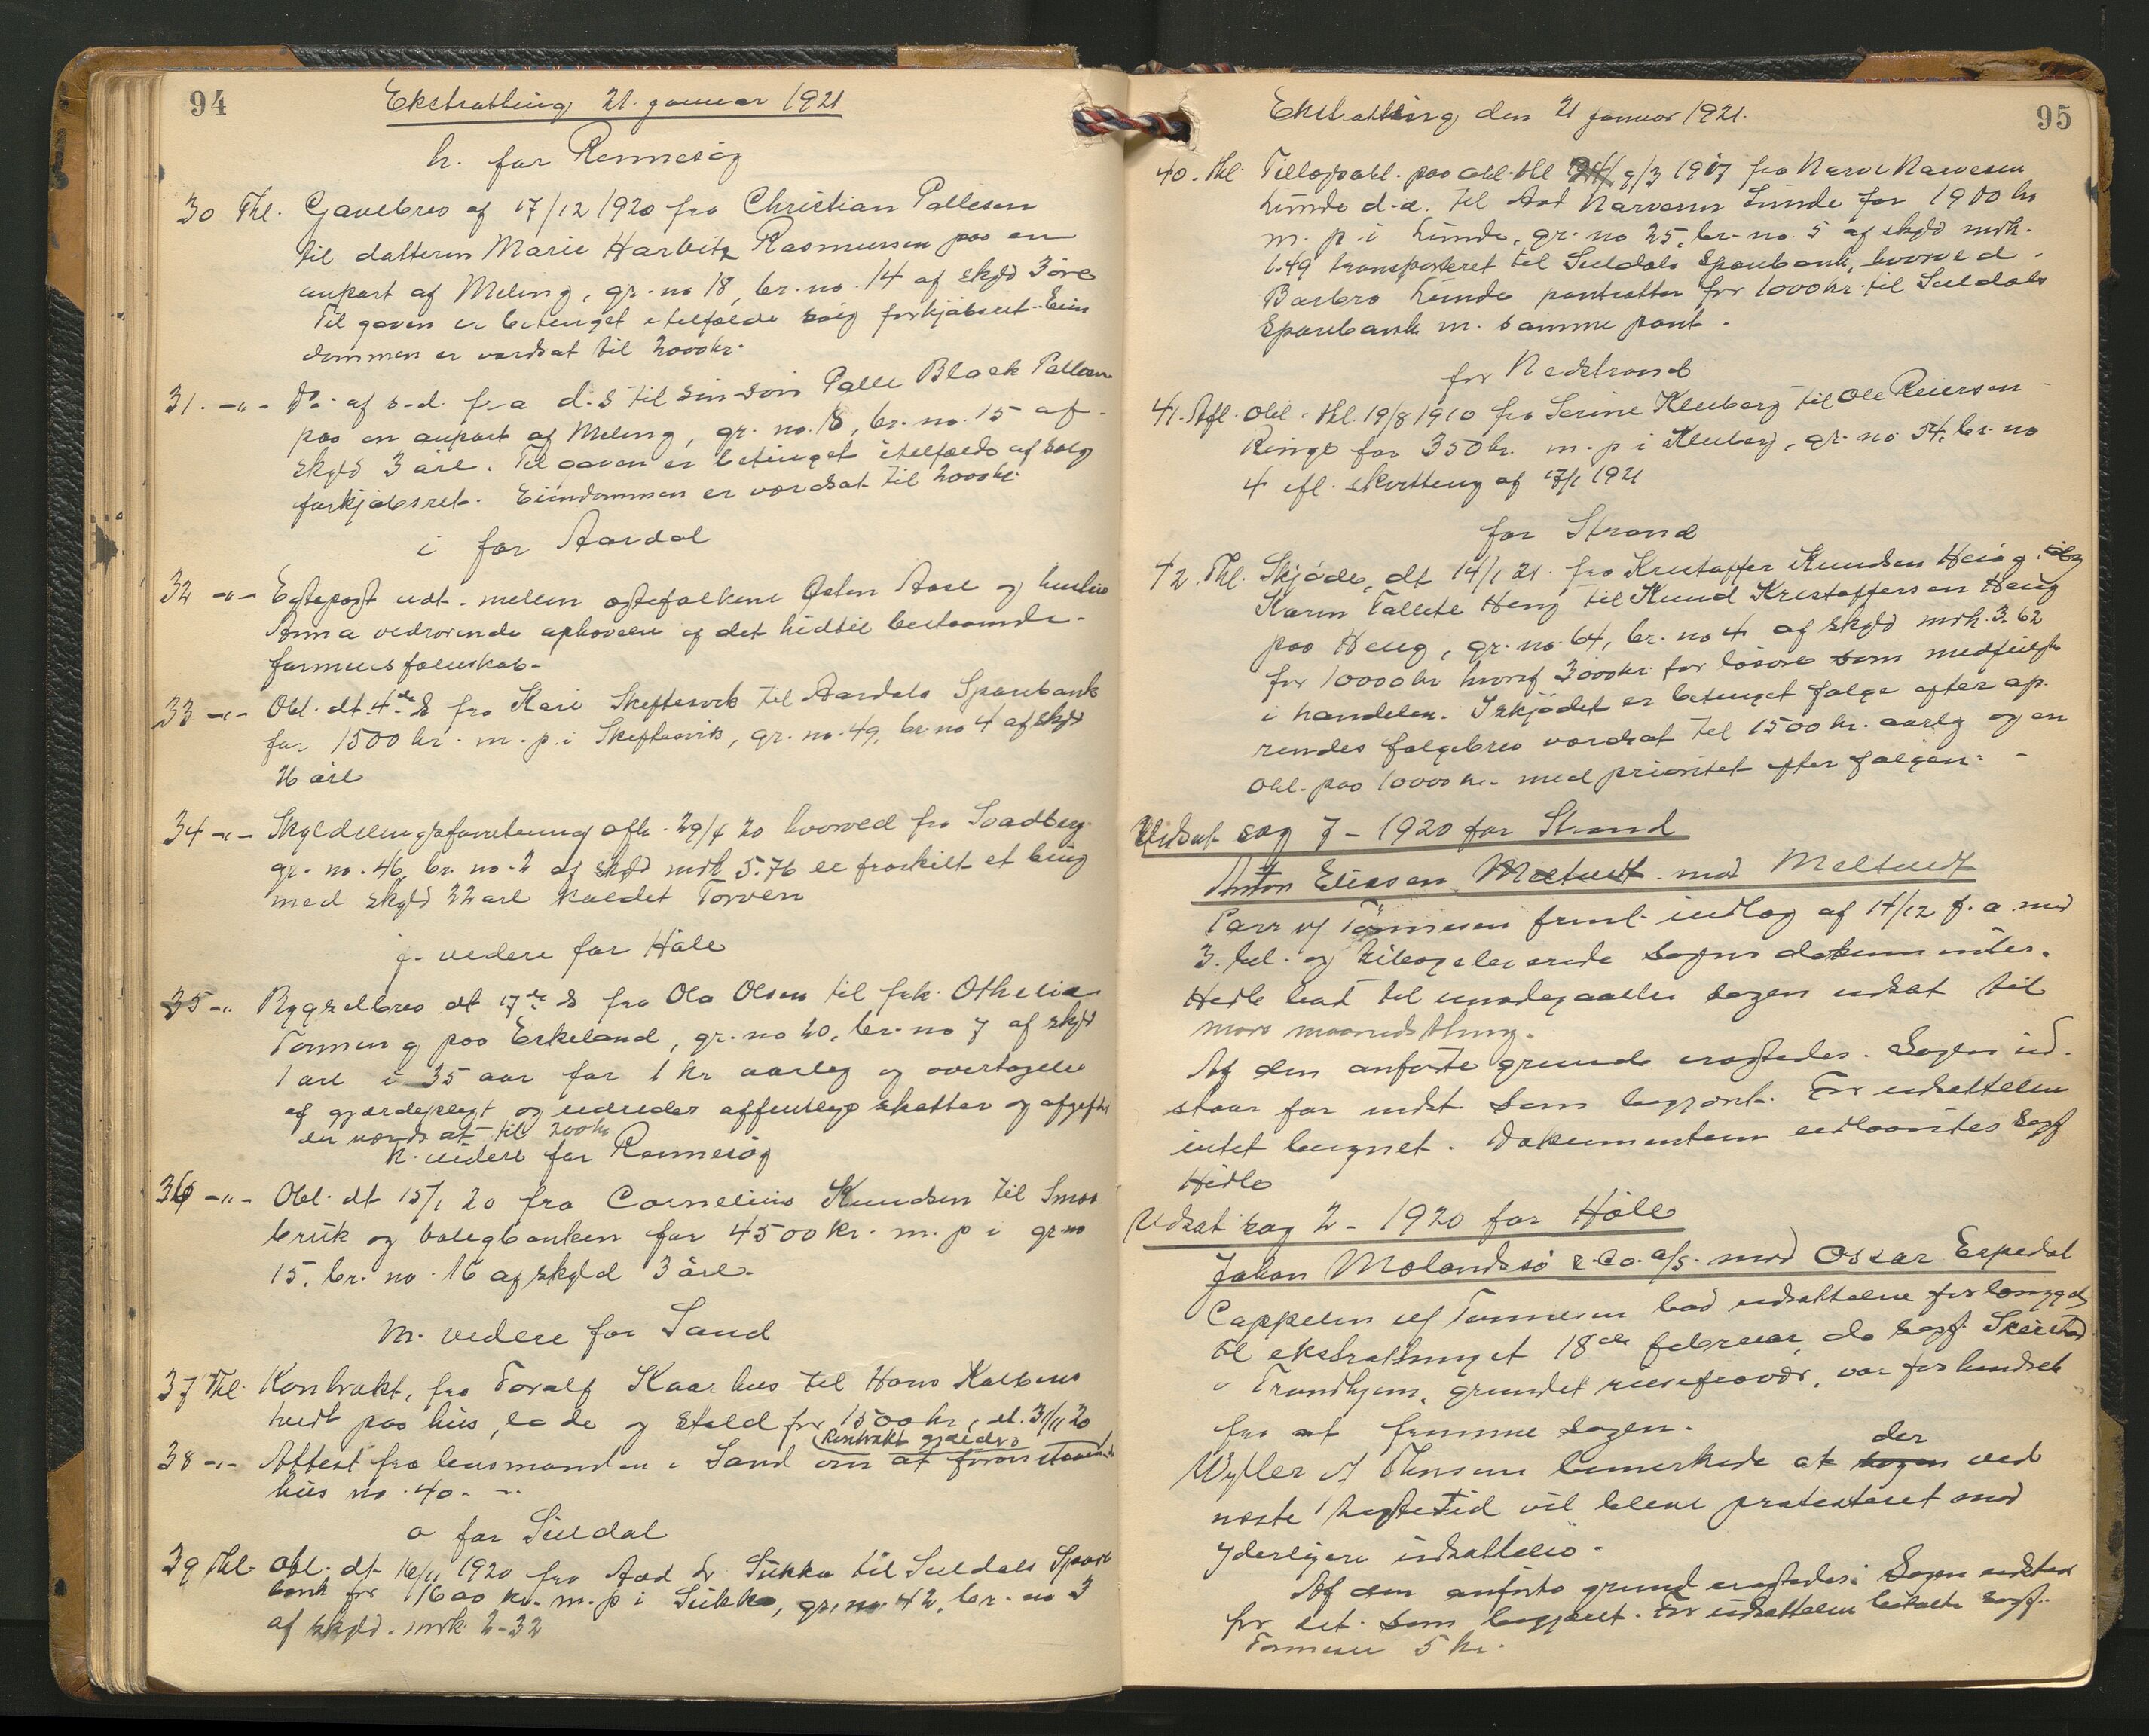 94
Ekstratting 21. januar 1921
h. for Rennesøy
30 Thl. Gavebrev af 17/12 1920 fra Christian Pallesen
til datteren Marie Harbitz Rasmussen paa en
anpart af Meling, gr. no 18, br. no. 14 af skyld 3 øre
Til gaven er betinget i tilfælde salg forkjøbsret. Eien
dommen er værdsat til 2000 kr.
31. -"- Do. af s.d. fra d.s til sin søn Palle Black Pallesen
paa en anpart af Meling, gr. no. 18, br. no. 15 af
skyld 3 øre. Til gaven er betinget i tilfælde af salg
forkjøbsret. Eiendommen er værdsat til 2000 kr.
i for Aardal
32 -"- Egtepagt udt. mellem egtefolkene Østen Aase og hustru
Anna vedrørende ophævelse af det hidtil bestaaende
formuesfælleskab.
33 -"- Obl. dt. 4de ds fra Kari Skeftesvik til Aardals Sparebank
for 1500 kr. m. p. i Skeftesvik, gr. no. 49, br. no 4 af skyld
26 øre
34 -"- Skylddelingsforretning afh. 29/4 20 hvorved fra Svadberg
gr. no. 46, br. no. 2 af skyld mrk 5.76 er fraskilt et brug
med skyld 22 øre kaldet Torven
j. videre for Høle
35 -"- Bygselbrev dt 17de ds fra Ola Olsen til frk. Othelia
Tønning paa Erkeland, gr. no 20, br. no 7 af skyld
1 øre i 35 aar for 1 kr aarlig og overtagelse
af gjærdepligt og udreder offentlige skatter og afgifter
er værdsat til 200 kr
k. videre for Rennesøy
36 -"- Obl. dt 15/1 20 fra Cornelius Knudsen til Smaa
bruk og boligbanken for 4500 kr. m. p i gr no
15, br. no. 16 af skyld 3 øre.
m. videre for Sand
37 Thl. Kontrakt, fra Toralf Kaarhus til Hans
tvedt paa hus, lade og stald for 1500 kr, dt. 31/11 20
38 -"- Attest fra lensmanden i Sand om at foranstaaende
kontrakt gjælder
hus no. 40. -
o for Suldal
39 Thl. Obl. dt 16/11 1920 fra Aad Sukka til Suldals Spare
bank for 1600 kr. m. p i Sukka, gr. no. 42, br. no 3
af skyld. mrk. 2-32
95
Ekstratting den 21 januar 1921.
40. thl. Tillægsobl. paa obl. thl 9/3 1917 fra Narve Narvesen
Lunde d.æ. til Aad Narvesen Lunde for 1900 kr
m. p. i Lunde, gr. no 25, br. no. 5 af skyld mrk.
1.49 transporteret til Suldals Sparebank, hvorved
Barbro Lunde pantsætter for 1000 kr. til Suldals
Sparebank m. samme pant.
for Nedstrand
41. Afl. Obl. thl. 19/8 1910 fra Serine Kleiberg til Ole Reiersen
Ringe for 350 kr. m. p i Kleiberg, gr. no 54, br. no
4 ifl. kvittering af 17/1 1921
for Strand
42. Thl. Skjøde, dt 14/1 21. fra Kristoffer Knudsen Heng og
Karen Tallette Heng til Knud Kristoffersen Heng
paa Heng, gr. no. 64, br. no 4 af skyld mrk. 3.62
for 10000 kr hvoraf 3000 kr. for løsøre som medfulgte
i handelen. I skjødet er betinget følge efter op
rendes følgebrev værdsat til 1500 kr. aarlig og en
obl. paa 10000 kr. med prioritet efter følgen. -
Udsat sag 7 - 1920 for Strand
Anton Eliasen Meltvedt mod Meltvedt
Parr v/ Tønnesen freml. indlæg af 14/12 f. a. med
3. bil. og tilbageleverede sagens dokumenter.
Hidle bad til imødegaaelse sagen udsat til
mars maanedsthing.
Af den anførte grund eragtedes. Sagen ud.
staar for udst som begjært. For udsættelsen
intet beregnet. Dokumenterne udlaantes sagf
Hidle
Udsat sag 2 - 1920 for Høle
Johan Molandsø & Co. a/s. mod Oscar Espedal
Cappelen v/ Tønnesen bad udsættelse forlænget
til ekstratthinget 18de februar, da sagf.
i Trondhjem, grundet reisefravær, var forhindret
fra at fremme sagen.
Wyller v/ Thinsen bemerkede at sagen der ved
næste tægtetid vil blive protesteret mod
yderligere udsættelse.
Af den anførte grund eragtedes: Sagen udstaar
for det. som begjæret. For udsættelsen betalte sagf.
Tønnesen 5 kr.